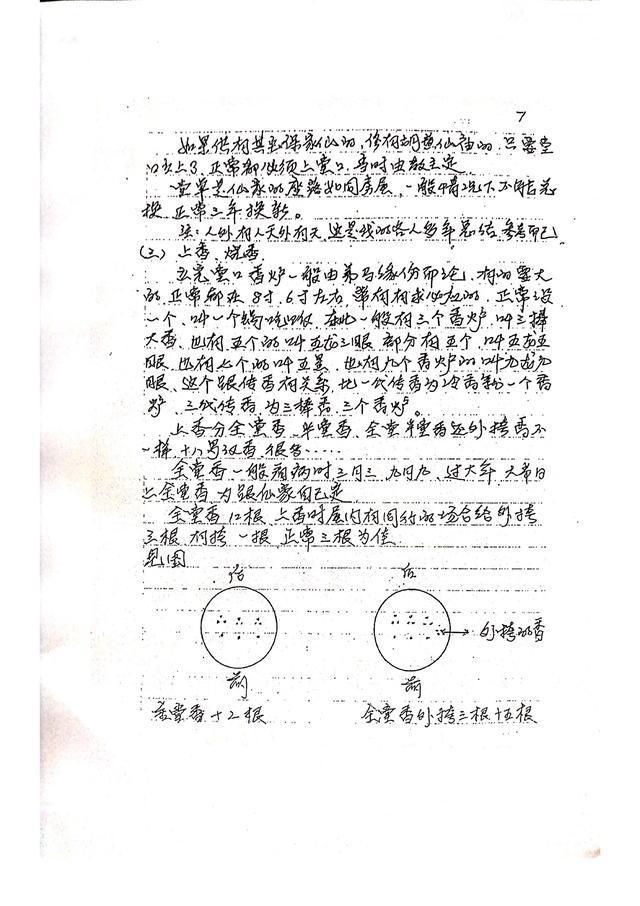 7
如果供有其它保家仙的,修有胡黄仙庙的,只要堂
口以上了,正常都必须上堂口,当时由教主定
堂单是仙家的座落如同房屋,一般情况下不能总
换,正常三年换新。
注:人外有人天外有天,这是我的个人多年总结,参考而已
(二)上香,烧香
立完堂口香炉一般由弟马缘份而论,有的要大
的,正常都在8寸,6寸左右,正常设
一个,叫一个,在此一般有三个香炉,叫三排
大香,也有五个的叫五龙三眼,部分有五个,叫五龙五
眼,也有七个的叫五星,也有九个香炉的叫九龙九
眼,这个跟传香有关系,比一代传香为一个香
炉,三代传香,为三排香,三个香炉。
上香分全堂香,半堂香,全堂半堂香还外挎香不
一样,十八罗汉香,很多……
全堂香一般看病时三月三,九月九,过大年,大节日
上全堂香,为跟仙家自己定
全堂香12根,上香时屋内有同行的场合给外挎
三根,有挎一根,正常三根为佳
见图
后
后
外挎的香
前
前
全堂香十2根
全堂香外挎三根十五根